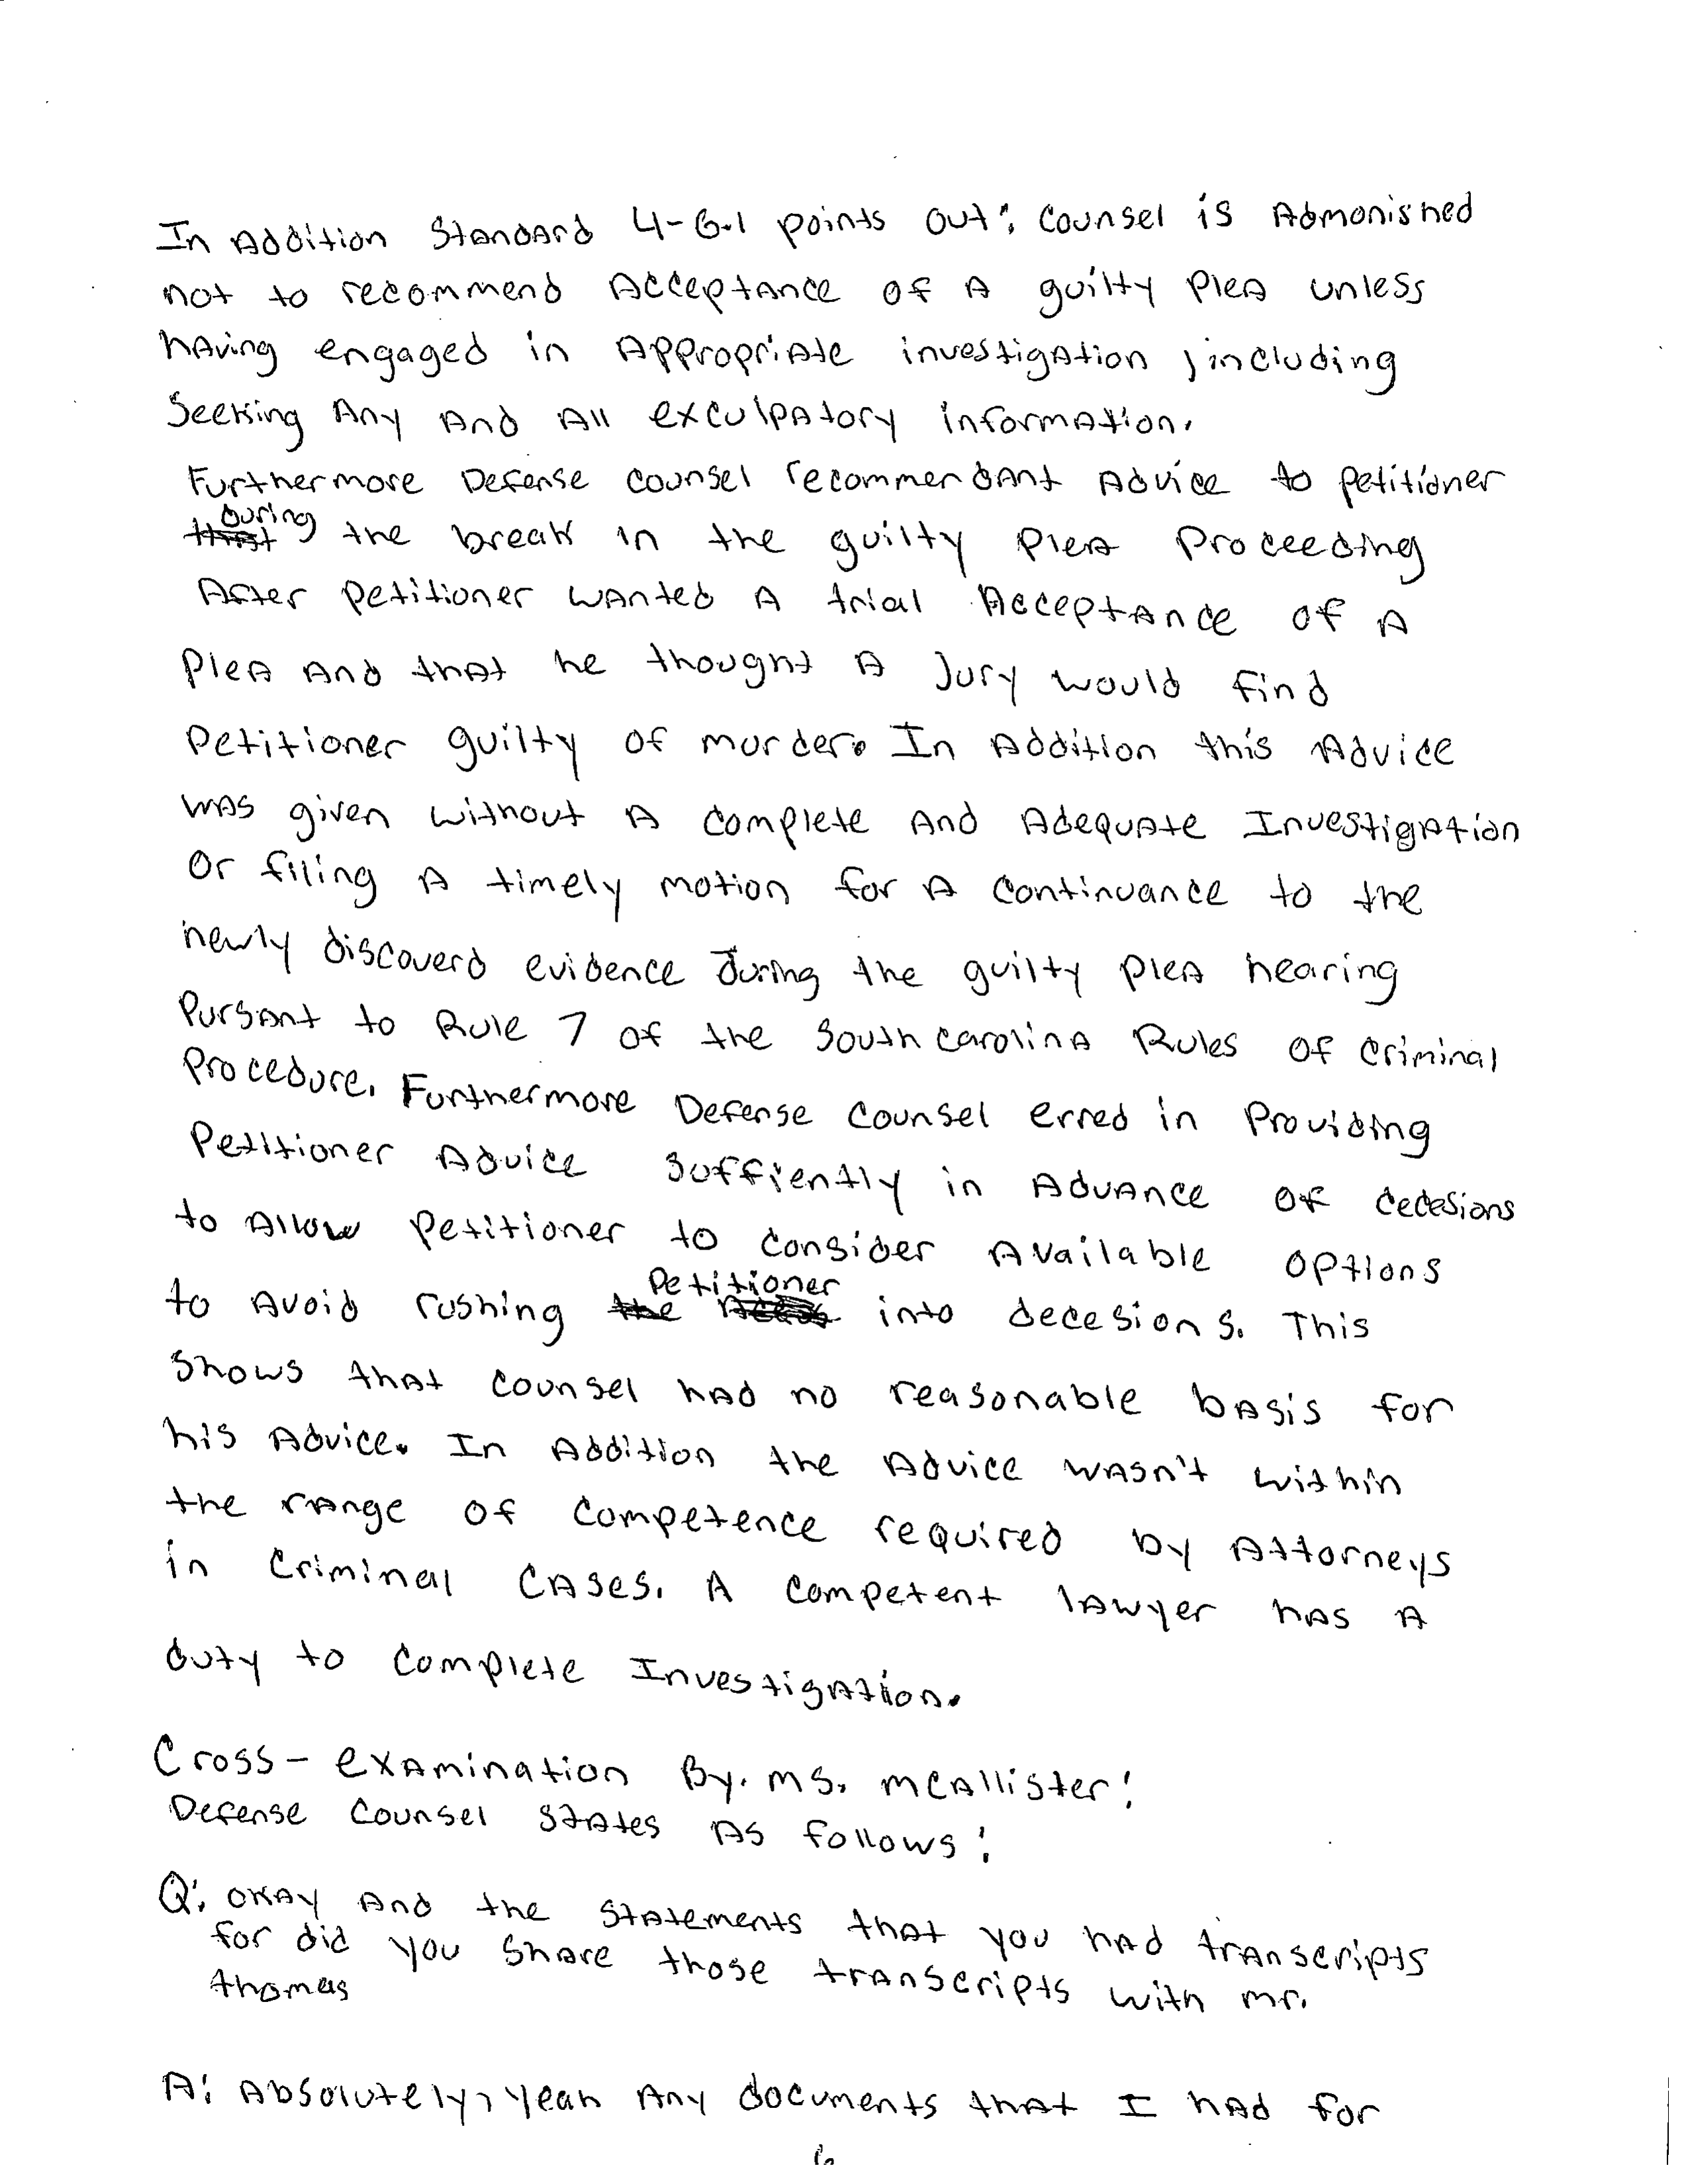 In Addition Standard 4-6.1 points out: Counsel is Admonished
not to recommend Acceptance of A guilty plea unless
having engaged in Appropriate investigation, including
seeking Any And All exculpatory information.
Furthermore Defense counsel recommendant Advice to petitioner
during
the break in the guilty plea proceeding
After petitioner wanted A trial Acceptance of A
plea And that he thought A Jury would find
petitioner guilty of murder. In Addition this Advice
was given without A complete And Adequate Investigation
or filing A timely motion for A continuance to the
newly discoverd evidence During the guilty plea hearing
Pursant to Rule 7 of the South Carolina Rules of Criminal
Procedure. Furthermore Defense Counsel erred in Providing
Petitioner Advice suffiently in Advance of decesions
to Allow Petitioner to consider Available options
Petitioner
to Avoid rushing the into decesions. This
shows that counsel had no reasonable basis for
his Advice. In Addition the Advice wasn't within
the range of competence required by Attorneys
in Criminal Cases. A competent lawyer has A
duty to complete Investigation.
Cross-examination By. Ms. McAllister:
Defense Counsel States As follows:
Q: okay And the statements that you had transcripts
for did you share those transcripts with mr.
thomas
A: Absolutely, yeah Any documents that I had for
6